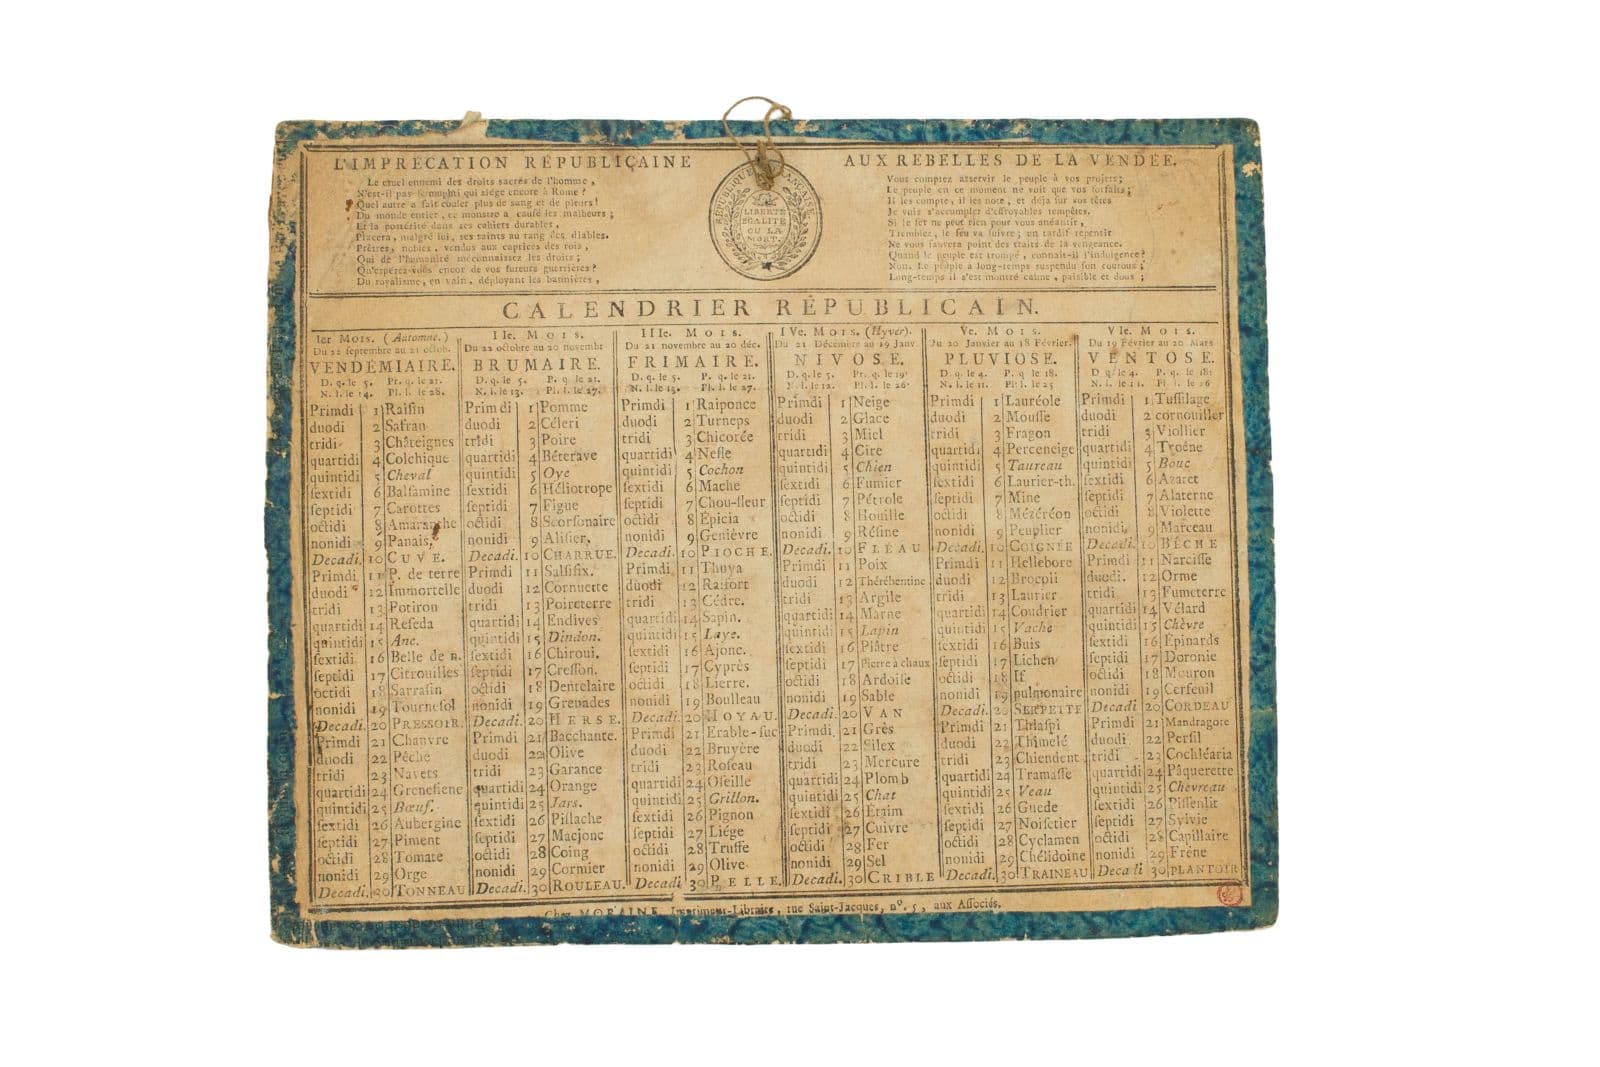 L'IMPRÉCATION RÉPUBLICAINE
Le cruel ennemi des droits sacrés de l'homme,
N'est-il pas le muphti qui siége encore à Rome?
Quel autre a fait couler plus de sang et de pleurs!
Du monde entier, ce monstre a causé les malheurs;
Et la postérité dans ses cahiers durables,
Placera, malgré lui, ses saints au rang des diables.
Prêtres, nobles, vendus aux caprices des rois,
Qui de l'humanité méconnaissez les droits;
Qu'espérez-vous encor de vos fureurs guerrières?
Du royalisme, en vain, déployant les bannières,
RÉPUBLIQUE FRANÇAISE
LIBERTÉ
EGALITÉ
OU LA
MORT.
AUX REBELLES DE LA VENDÉE.
Vous comptez asservir le peuple à vos projets;
Le peuple en ce moment ne voit que vos forfaits;
Il les compte, il les note, et déja sur vos têtes
Je vois s'accumpler d'effroyables tempêtes.
Si le fer ne peut rien pour vous anéantir,
Tremblez, le feu va suivre; un tardif repentir
Ne vous sauvera point des traits de la vengeance.
Quand le peuple est trompé, connait-il l'indulgence?
Non. Le peuple a long-temps suspendu son courous;
Long-temps il s'est montré calme, paisible et doux;
CALENDRIER RÉPUBLICAIN.
Ier MOIS. (Automne.)
Du 22 septembre au 21 octob.
VENDÉMIAIRE.
D. q. le 5. Pr. q. le 21.
N. l. le 14. Pl. l. le 28.
Primdi 1 Raiſin
duodi 2 Safran
tridi 3 Châteignes
quartidi 4 Colchique
quintidi 5 Cheval
ſextidi 6 Balſamine
ſeptidi 7 Carottes
octidi 8 Amaranthe
nonidi 9 Panais,
Decadi. 10 CUVE.
Primdi 11 P. de terre
duodi 12 Immortelle
tridi 13 Potiron
quartidi 14 Reſeda
quintidi 15 Anc.
ſextidi 16 Belle de n.
ſeptidi 17 Citrouilles
octidi 18 Sarraſin
nonidi 19 Tourneſol
Decadi. 20 PRESSOIR.
Primdi 21 Chanvre
duodi 22 Pêche
tridi 23 Navets
quartidi 24 Greneſiene
quintidi 25 Bœuf.
ſextidi 26 Aubergine
ſeptidi 27 Piment
octidi 28 Tomate
nonidi 29 Orge
Decadi. 30 TONNEAU
IIe. MOIS.
Du 22 octobre au 20 novembr
BRUMAIRE.
D. q. le 5. P. q le 21.
N. l. le 13. Pl. l. le 27.
Primdi 1 Pomme
duodi 2 Céleri
tridi 3 Poire
quartidi 4 Béterave
quintidi 5 Oye
ſextidi 6 Héliotrope
ſeptidi 7 Figue
octidi 8 Scorſonaire
nonidi 9 Aliſier,
Decadi. 10 CHARRUE.
Primdi 11 Salſifix.
duodi 12 Cornuette
tridi 13 Poireterre
quartidi 14 Endives
quintidi 15 Dindon.
ſextidi 16 Chiroui.
ſeptidi 17 Creſſon.
octidi 18 Dentelaire
nonidi 19 Grenades
Decadi. 20 HERSE.
Primdi 21 Bacchante.
duodi 22 Olive
tridi 23 Garance
quartidi 24 Orange
quintidi 25 Jars.
ſextidi 26 Piſtache
ſeptidi 27 Macjonc
octidi 28 Coing
nonidi 29 Cormier
Decadi. 30 ROULEAU.
IIIe. MOIS.
Du 21 novembre au 20 déc.
FRIMAIRE.
D. q. le 5. P. q. le 21.
N. l. le 13. Pl. l. le 27.
Primdi 1 Raiponce
duodi 2 Turneps
tridi 3 Chicorée
quartidi 4 Nefle
quintidi 5 Cochon
ſextidi 6 Mache
ſeptidi 7 Chou-fleur
octidi 8 Épicia
nonidi 9 Genièvre
Decadi. 10 PIOCHE.
Primdi 11 Thuya
duodi 12 Raifort
tridi 13 Cédre.
quartidi 14 Sapin.
quintidi 15 Laye.
ſextidi 16 Ajonc.
ſeptidi 17 Cyprès
octidi 18 Lierre.
nonidi 19 Boulleau
Decadi. 20 HOYAU.
Primdi 21 Érable-ſuc
duodi 22 Bruyère
tridi 23 Roſeau
quartidi 24 Oſeille
quintidi 25 Grillon.
ſextidi 26 Pignon
ſeptidi 27 Liége
octidi 28 Truffe
nonidi 29 Olive
Decadi 30 PELLE.
IVe. MOIS. (Hyver).
Du 21 Décembre au 19 Janv
NIVOSE.
D. q. le 5. Pr. q. le 19.
N. l. le 12. Pl. l. le 26.
Primdi 1 Neige
duodi 2 Glace
tridi 3 Miel
quartidi 4 Cire
quintidi 5 Chien
ſextidi 6 Fumier
ſeptidi 7 Pétrole
octidi 8 Houille
nonidi 9 Réſine
Decadi. 10 FLÉAU
Primdi 11 Poix
duodi 12 Théréhentine
tridi 13 Argile
quartidi 14 Marne
quintidi 15 Lapin
ſextidi 16 Plâtre
ſeptidi 17 Pierre à chaux
octidi 18 Ardoiſe
nonidi 19 Sable
Decadi. 20 VAN
Primdi. 21 Grès
duodi 22 Silex
tridi 23 Mercure
quartidi 24 Plomb
quintidi 25 Chat
ſextidi 26 Étaim
ſeptidi 27 Cuivre
octidi 28 Fer
nonidi 29 Sel
Decadi. 30 CRIBLE
Ve. MOIS.
Du 20 Janvier au 18 Février.
PLUVIOSE.
D. q. le 4. P. q. le 18.
N. l. le 11. Pl. l. le 25
Primdi 1 Lauréole
duodi 2 Mouſſe
tridi 3 Fragon
quartidi 4 Perceneige
quintidi 5 Taureau
ſextidi 6 Laurier-th.
ſeptidi 7 Mine
octidi 8 Mézéréon
nonidi 9 Peuplier
Decadi. 10 COIGNÉE
Primdi 11 Hellebore
duodi 12 Brocoli
tridi 13 Laurier
quartidi 14 Coudrier
quintidi 15 Vache
ſextidi 16 Buis
ſeptidi 17 Lichen
octidi 18 If
nonidi 19 pulmonaire
Decadi. 20 SERPETTE
Primdi 21 Thlaſpi
duodi 22 Thimelé
tridi 23 Chiendent
quartidi 24 Tramaſſe
quintidi 25 Veau
ſextidi 26 Guede
ſeptidi 27 Noiſetier
octidi 28 Cyclamen
nonidi 29 Chélidoine
Decadi. 30 TRAINEAU
VIe. MOIS.
Du 19 Février au 20 Mars
VENTOSE.
D q. le 4. P. q le 18.
N. l. le 11. Pl. l. le 26
Primdi 1 Tuſſilage
duodi 2 cornouiller
tridi 3 Viollier
quartidi 4 Troêne
quintidi 5 Bouc
ſextidi 6 Azaret
ſeptidi 7 Alaterne
octidi 8 Violette
nonidi 9 Marceau
Decadi. 10 BÊCHE
Primdi 11 Narciſſe
duodi. 12 Orme
tridi 13 Fumeterre
quartidi 14 Vélard
quintidi 15 Chèvre
ſextidi 16 Épinards
ſeptidi 17 Doronie
octidi 18 Mouron
nonidi 19 Cerfeuil
Decadi 20 CORDEAU
Primdi 21 Mandragore
duodi 22 Perſil
tridi 23 Cochléaria
quartidi 24 Pâquerette
quintidi 25 Chevreau
ſextidi 26 Piſſenlit
ſeptidi 27 Sylvie
octidi 28 Capillaire
nonidi 29 Frêne
Decadi 30 PLANTOIR
Chez MORAINE, Imprimeur-Libraire, rue Saint-Jacques, nº. 5, aux Aſſociés.